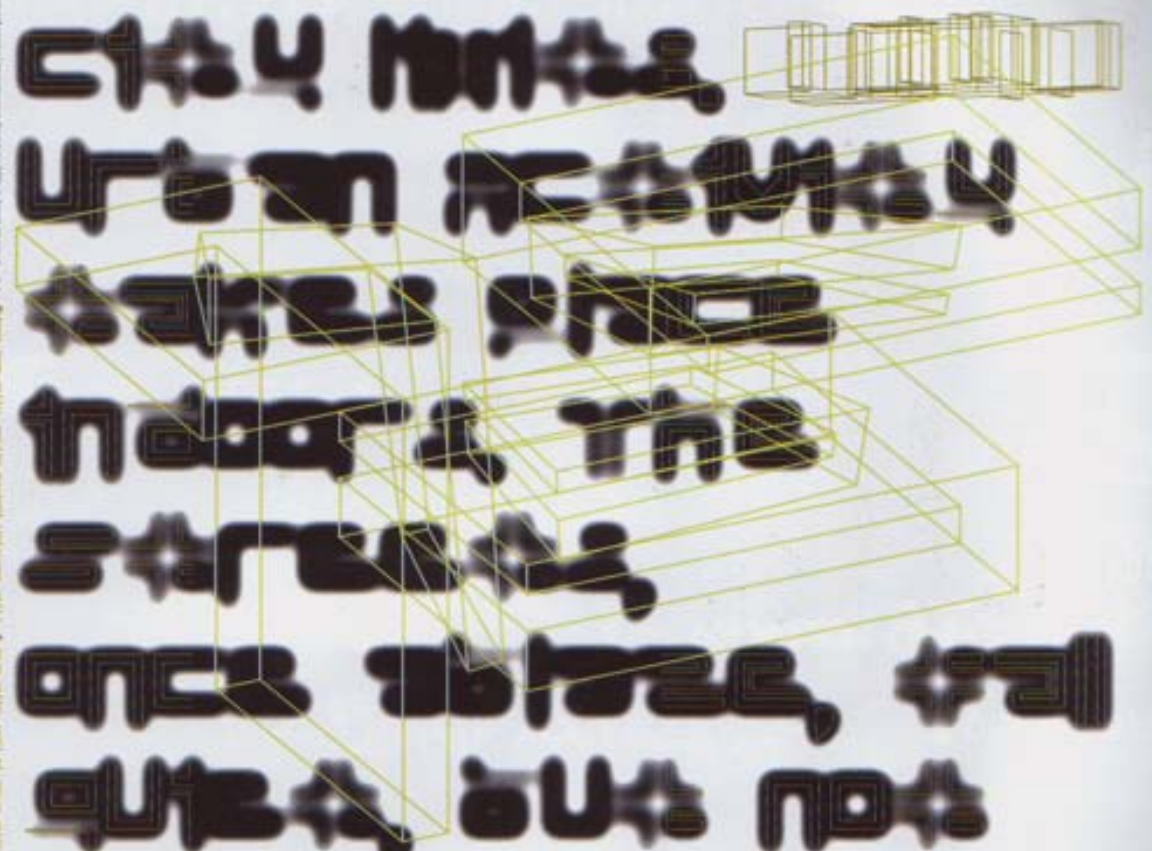 city
urban activity
takes place
indoors, The
streets,
once ablaze, fall
quiet, but not